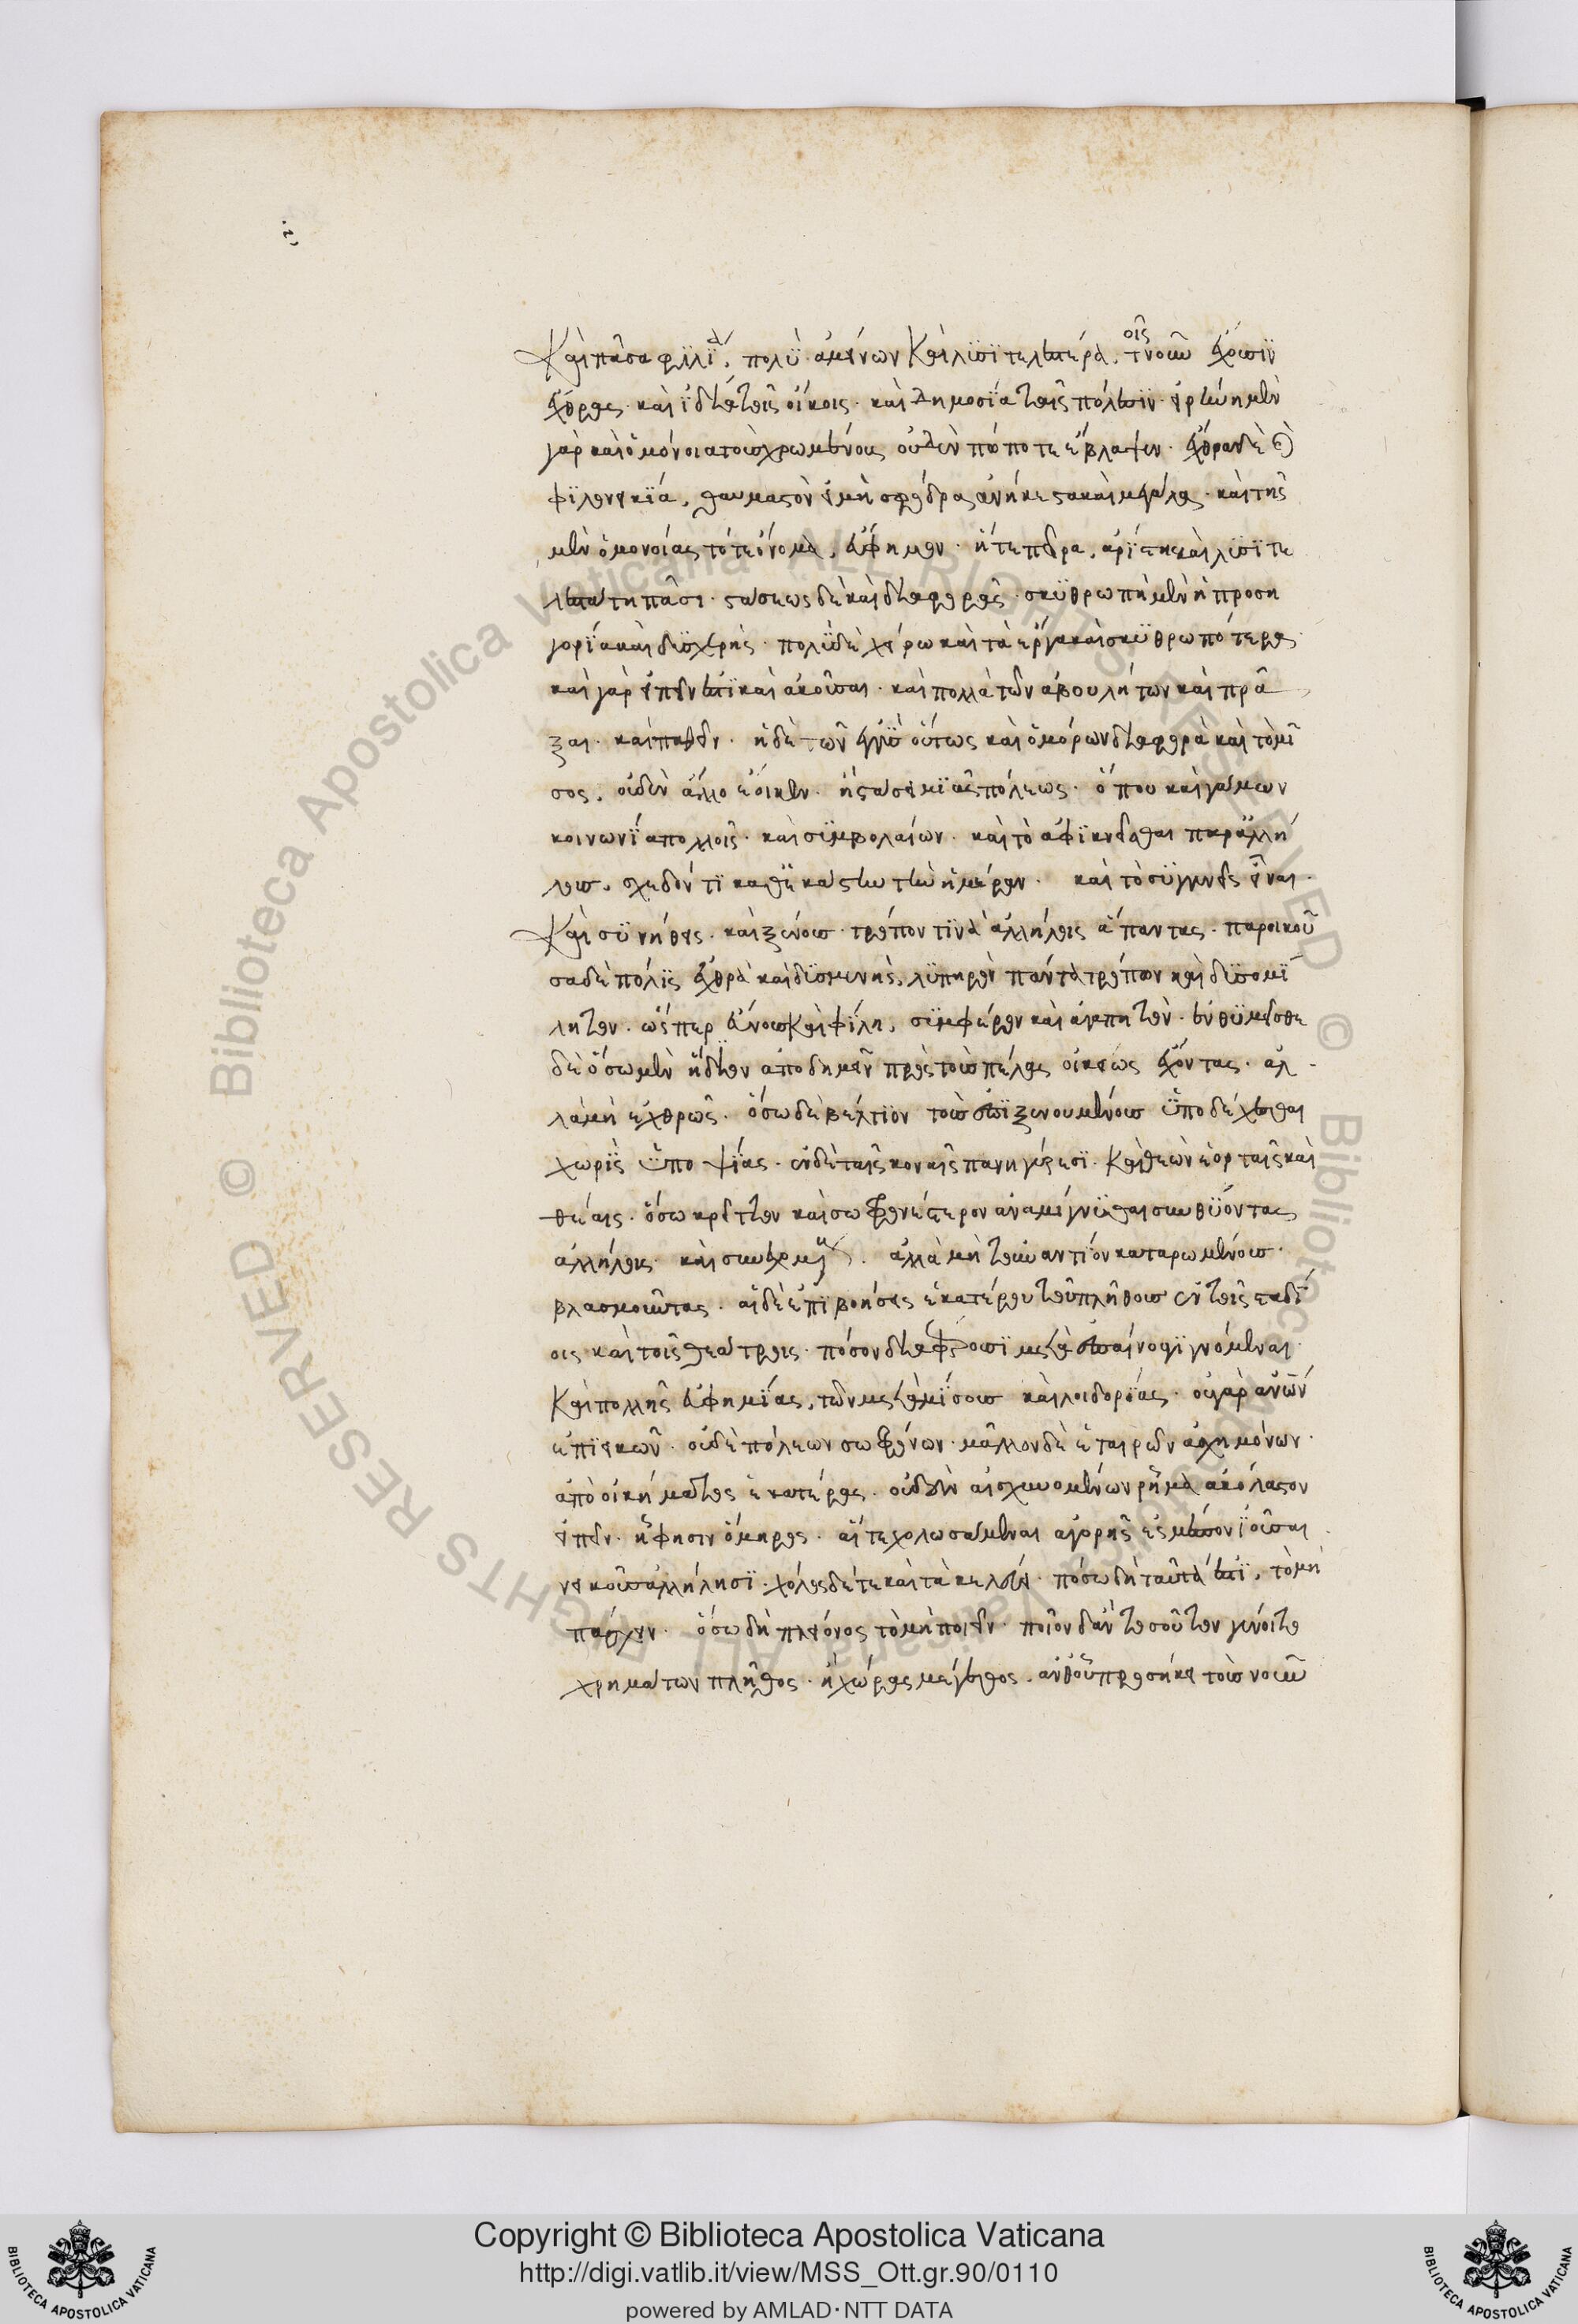 Καὶ πᾶσα φιλία, πολὺ ἀμείνων καὶ λυσιτελεστέρα τοῖς νοῦν ἔχουσιν
ἔχθρας· καὶ ἰδίᾳ τοῖς οἴκοις· καὶ δημοσίᾳ ταῖς πόλεσιν· εἰρήνη μὲν
γὰρ καὶ ὁμόνοια τοὺς χρωμένους οὐδὲν πώποτε ἔβλαψεν· ἔχθραν δὲ καὶ
φιλονεικία, θαυμαστὸν εἰ μὴ σφόδρα ἀνήκεστα καὶ μεγάλα· καὶ τῆς
μὲν ὁμονοίας τό τε ὄνομα, εὔφημον· ἥ τε πεῖρα, ἀρίστη καὶ λυσιτε
λεστάτη πᾶσι· στάσεως δὲ καὶ διαφορᾶς· σκυθρωπὴ μὲν ἡ προση
γορία καὶ δυσχερής· πολὺ δὲ χείρω καὶ τὰ ἔργα καὶ σκυθρωπότερα
καὶ γὰρ εἰπεῖν ἐστὶ καὶ ἀκοῦσαι· καὶ πολλὰ τῶν ἀβουλήτων καὶ πρᾶ
ξαι· καὶ παθεῖν· ἡ δὲ τῶν ἐγγὺς οὕτως καὶ ὁμόρων διαφορὰ καὶ τὸ μῖ
σος, οὐδὲν ἄλλο ἔοικεν· ἢ στάσει μιᾶς πόλεως· ὅπου καὶ γάμων
κοινωνία πολλοῖς· καὶ συμβολαίων· καὶ τὸ ἀφικνεῖσθαι παρ' ἀλλή
λους, σχεδόν τι καθ' ἑκάστην τὴν ἡμέραν· καὶ τὸ συγγενεῖς εἶναι·
Καὶ συνήθεις· καὶ ξένους· τρόπον τινὰ ἀλλήλοις ἅπαντας· παροικοῦ
σα δὲ πόλις ἐχθρὰ καὶ δυσμενής, λυπηρὸν πάντα τρόπον καὶ δυσομί
λητον· ὥσπερ εὔνους καὶ φίλη, συμφέρον καὶ ἀγαπητόν· ἐνθυμεῖσθε
δὲ ὅσῳ μὲν ἥδιον ἀποδημεῖν πρὸς τοὺς πέλας οἰκείως ἔχοντας· ἀλ
λὰ μὴ ἐχθρῶς· ὅσῳ δὲ βέλτιον τοὺς ἐπιξενουμένους ὑποδέχεσθαι
χωρὶς ὑποψίας· ἐν δὲ ταῖς κοναῖς πανηγύρεσι· καὶ θεῶν ἑορταῖς καὶ
θέαις· ὅσῳ κρεῖττον καὶ σωφρονέστερον ἀναμίγνυσθαι συνθύοντας
ἀλλήλοις· καὶ συνευχομένους· ἀλλὰ μὴ τοὐναντίον καταρωμένους·
βλασφημοῦντας· αἱ δὲ ἐπιβοήσεις ἑκατέρου τοῦ πλήθους ἐν τοῖς σταδί
οις καὶ τοῖς θεάτροις· πόσον διαφέρουσι μετὰ ἐπαίνου γιγνόμεναι·
Καὶ πολλῆς εὐφημίας, τῶν μετὰ μίσους καὶ λοιδορίας· οὐ γὰρ ἀνῶν
ἐπιεικῶν· οὐδὲ πόλεων σωφρόνων· μᾶλλον δὲ ἑταιρῶν ἀσχημόνων·
ἀπὸ οἰκήματος ἑκατέρας· οὐδὲν αἰσχυνομένων ῥῆμα ἀκόλαστον
εἰπεῖν· ᾗ φησιν ὅμηρος· αἵ τε χολωσάμεναι ἀγορῆς ἐς μέσον ἰοῦσαι
νεικοῦσ' ἀλλήλῃσι· χόλος δέ τε καὶ τὰ κελεύει· πόσῳ δὴ ταῦτά ἐστι, τὸ μὴ
πάσχειν· ὅσῳ δὴ πλείονος τὸ μὴ ποιεῖν· ποῖον δ' ἂν τοσοῦτον γένοιτο
χρημάτων πλῆθος· ἢ χώρας μέγεθος· ἀνθ' οὗ προσήκει τοὺς νοῦν